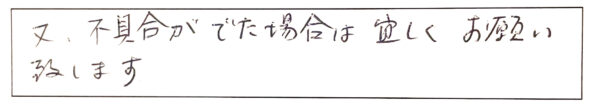 又、不具合がでた場合は宜しくお願い
致します